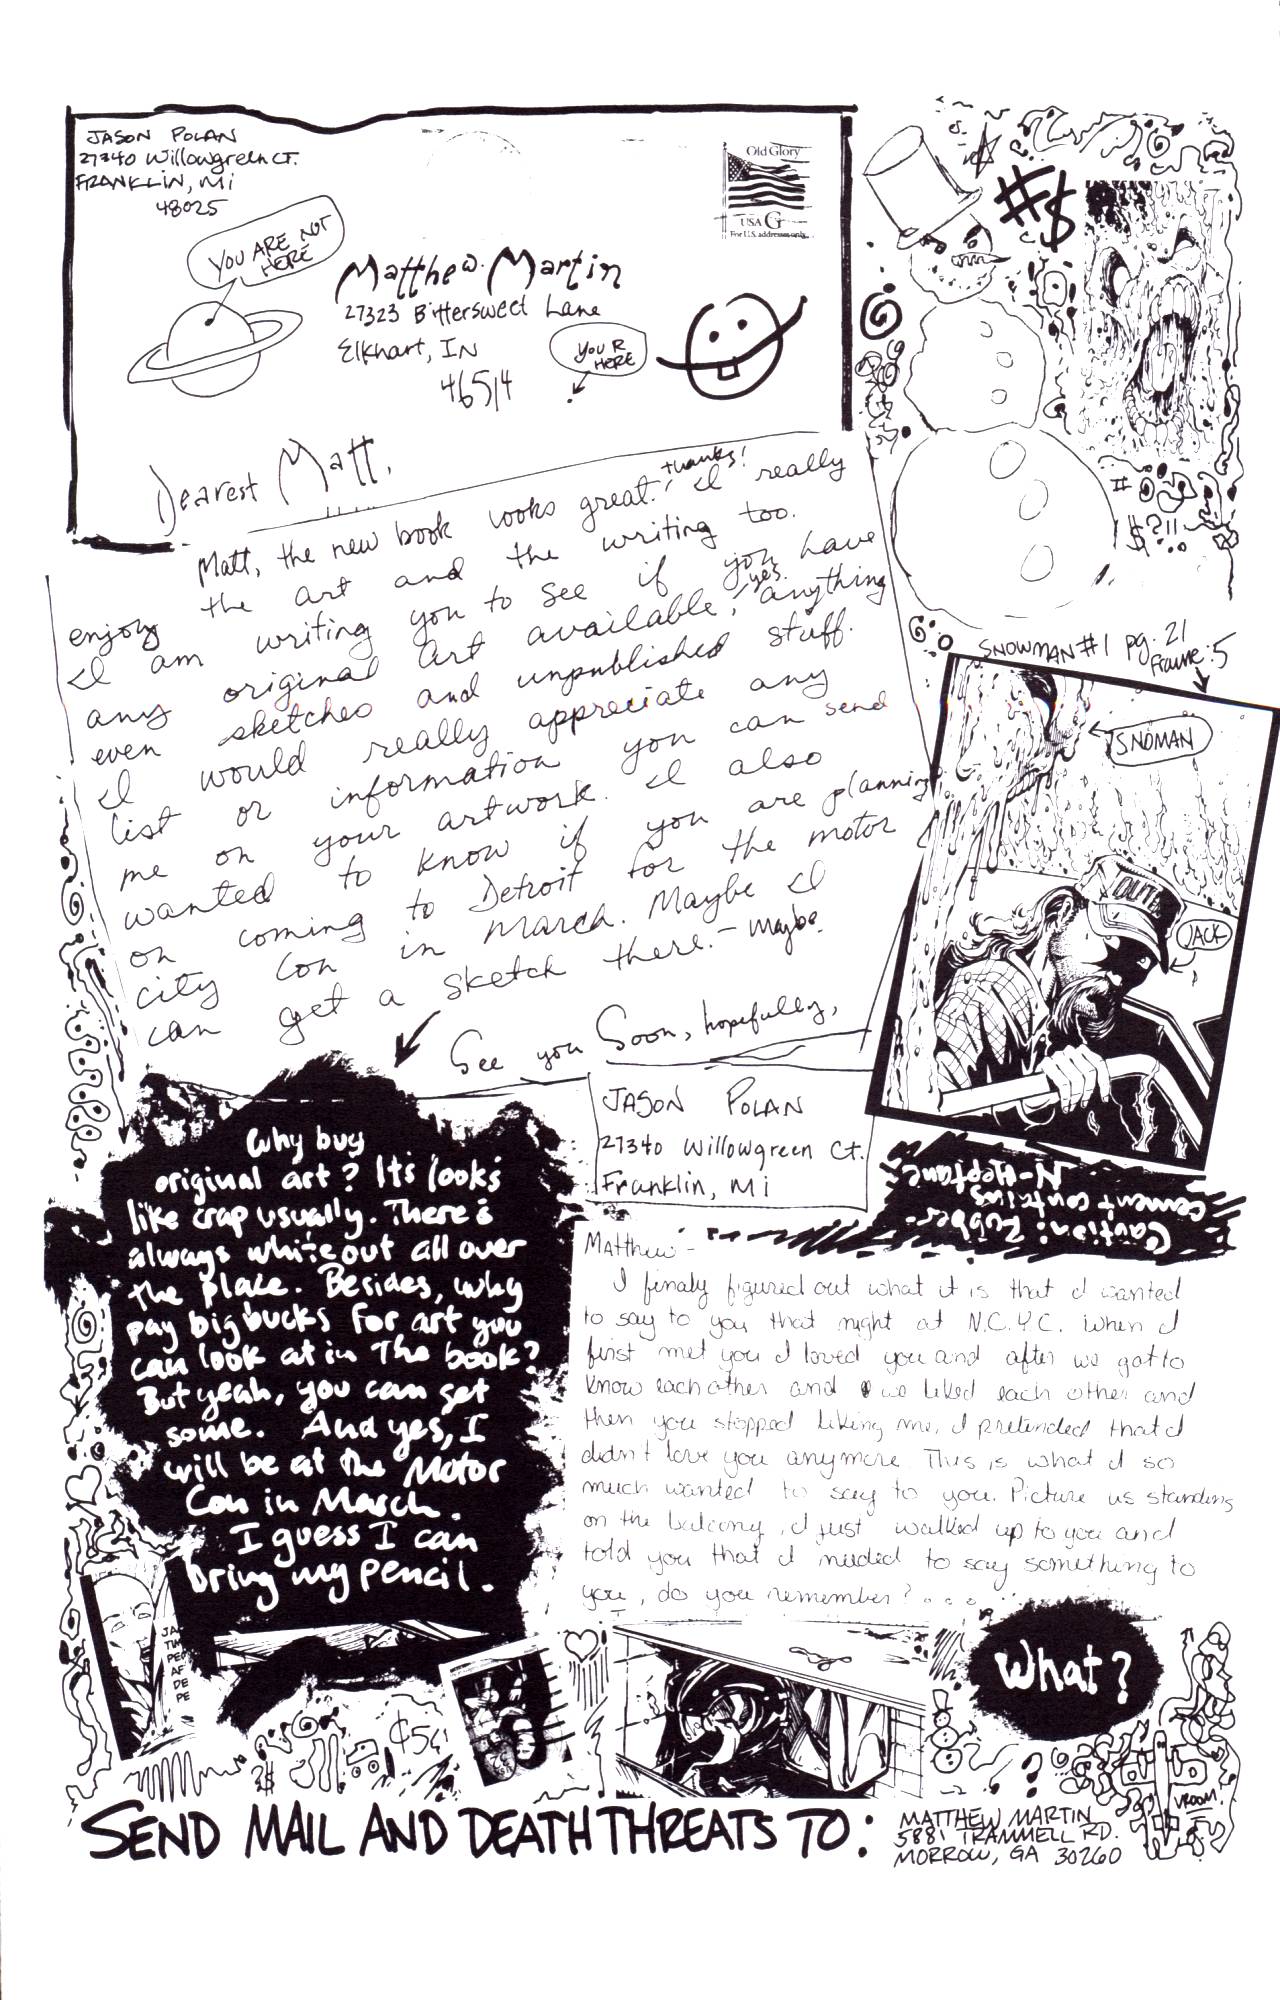 JASON POLAN
27340 Willowgreen CT.
FRANKLIN, Mi
48025
Old Glory
USA G
For U.S. addresses only
YOU ARE NOT
HERE
Matthew Martin
27323 Bittersweet Lane
Elkhart, IN
46514
YOU R
HERE
#$
Dearest Matt,
Matt, the new book looks great! thanks! I really
enjoy the art and the writing too.
I am writing you to see if you have
any original art available, yes. anything
even sketches and unpublished stuff.
I would really appreciate any
list or information you can send
me on your artwork. I also
wanted to know if you are planning
on coming to Detroit for the motor
city con in march. Maybe I
can get a sketch there. - Maybe.
See you Soon, hopefully,
JASON POLAN
27340 Willowgreen Ct.
Franklin, Mi
$?!!
SNOWMAN #1 pg. 21
Frame: 5
SNOMAN
OUT
JACK
Caution: Rubber
cement contains
N-Heptane
Why buy
original art? It's looks
like crap usually. There's
always white out all over
the place. Besides, why
pay big bucks for art you
can look at in the book?
But yeah, you can get
some. And yes, I
will be at the Motor
Con in March.
I guess I can
bring my pencil.
Matthew -
I finaly figured out what it is that I wanted
to say to you that night at N.C.Y.C. When I
first met you I loved you and after we got to
know each other and we liked each other and
then you stopped liking me, I pretended that I
didn't love you anymore. This is what I so
much wanted to say to you. Picture us standing
on the balcony, I just walked up to you and
told you that I needed to say something to
you, do you remember? . . .
What?
JA
TW
PEO
AF
DE
PE
¢5¢
$
?
VROOM!
SEND MAIL AND DEATH THREATS TO:
MATTHEW MARTIN
5881 TRAMMELL RD.
MORROW, GA 30260